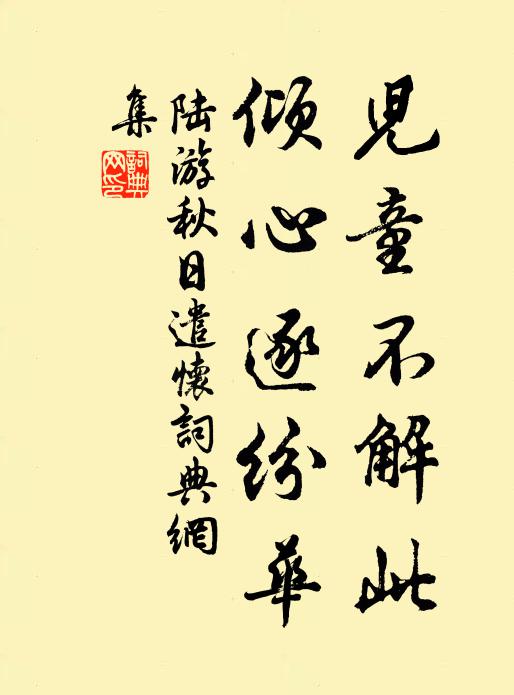 兒童不解此
傾心逐紛華
陸游秋日遣懷詞典網
集
詞典
网印